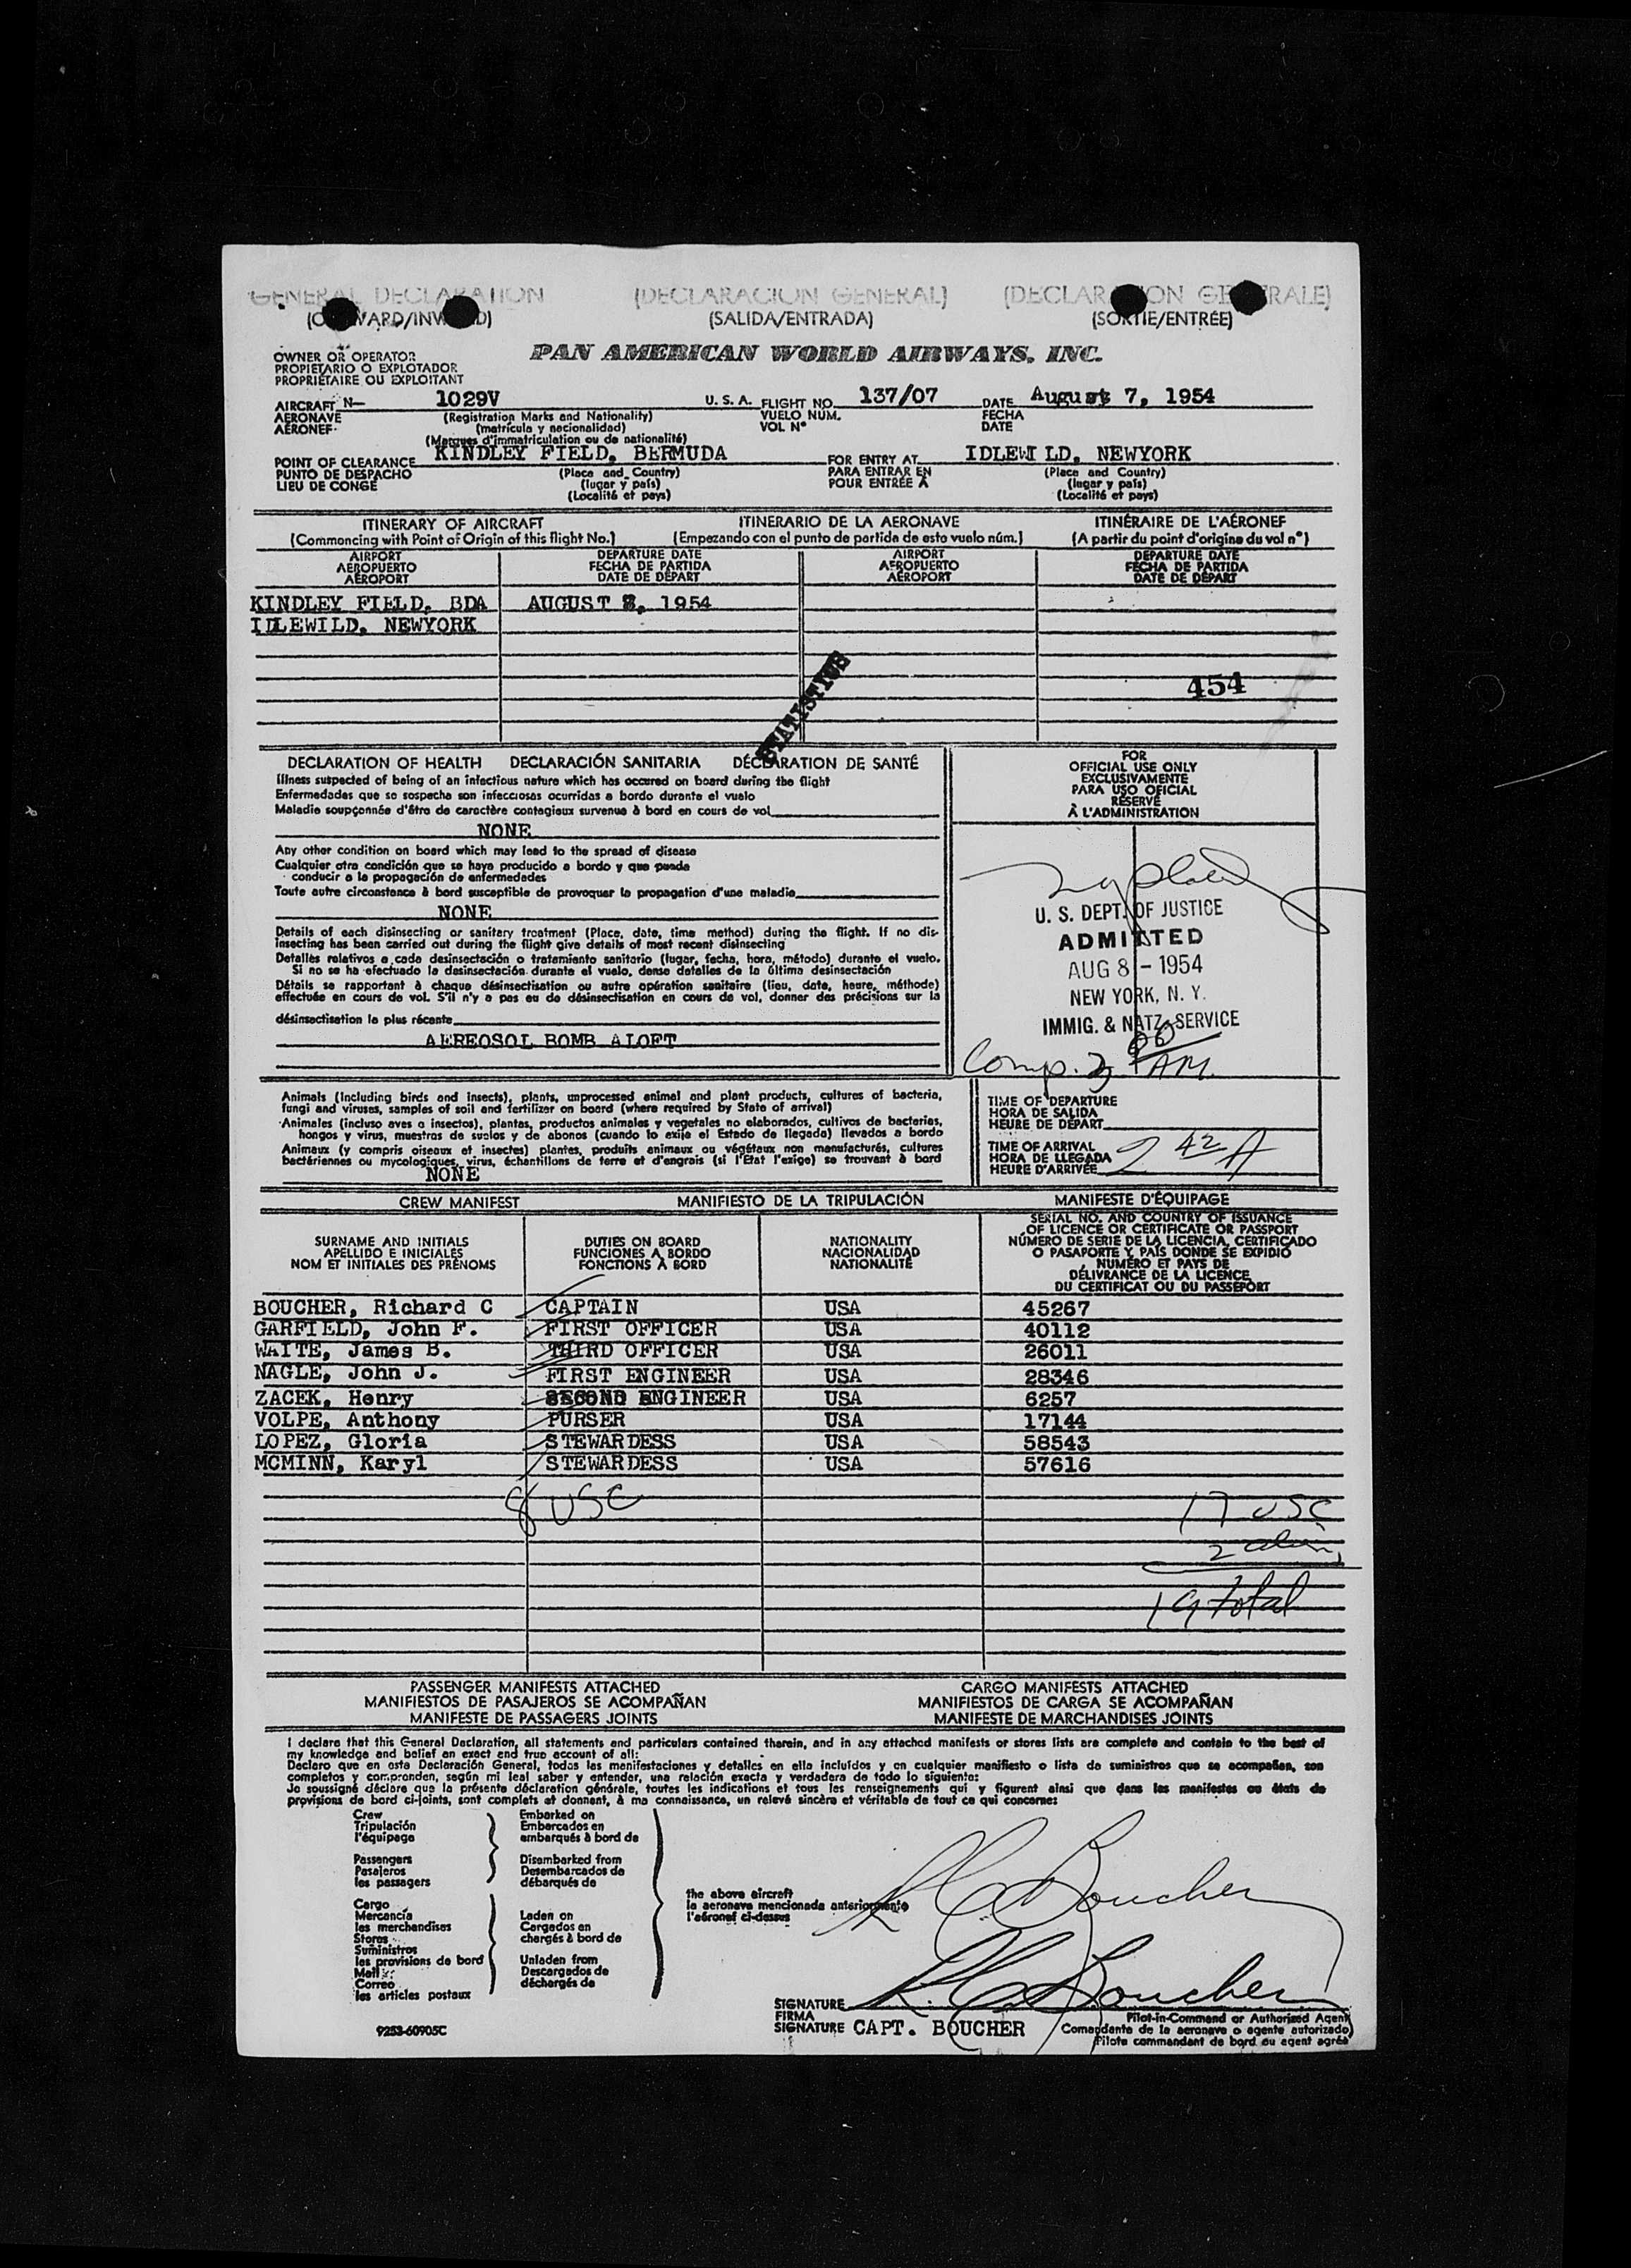 GENERAL DECLARATION (DECLARACION GENERAL) (DECLARATION GENERALE)
(OUTWARD/INWARD) (SALIDA/ENTRADA) (SORTIE/ENTRÉE)
PAN AMERICAN WORLD AIRWAYS, INC.
OWNER OR OPERATOR
PROPIETARIO O EXPLOTADOR
PROPRIÉTAIRE OU EXPLOITANT
AIRCRAFT N— 1029V U. S. A. FLIGHT NO. 137/07 DATE August 7, 1954
AERONAVE (Registration Marks and Nationality) VUELO NÚM. FECHA
AÉRONEF (matrícula y nacionalidad) VOL N° DATE
(Marques d'immatriculation ou de nationalité)
POINT OF CLEARANCE KINDLEY FIELD, BERMUDA FOR ENTRY AT IDLEWILD, NEWYORK
PUNTO DE DESPACHO (Place and Country) PARA ENTRAR EN (Place and Country)
LIEU DE CONGÉ (lugar y país) POUR ENTRÉE À (lugar y país)
(Localité et pays) (Localité et pays)
ITINERARY OF AIRCRAFT ITINERARIO DE LA AERONAVE ITINÉRAIRE DE L'AÉRONEF
(Commencing with Point of Origin of this flight No.) (Empezando con el punto de partida de esto vuelo núm.) (A partir du point d'origine du vol n°)
AIRPORT DEPARTURE DATE AIRPORT DEPARTURE DATE
AEROPUERTO FECHA DE PARTIDA AEROPUERTO FECHA DE PARTIDA
AÉROPORT DATE DE DÉPART AÉROPORT DATE DE DÉPART
KINDLEY FIELD, BDA AUGUST 8, 1954
IDLEWILD, NEWYORK
454
STATISTICS
DECLARATION OF HEALTH DECLARACIÓN SANITARIA DÉCLARATION DE SANTÉ
Illness suspected of being of an infectious nature which has occured on board during the flight
Enfermedades que se sospecha son infecciosas ocurridas a bordo durante el vuelo
Maladie soupçonnée d'être de caractère contagieux survenue à bord en cours de vol
NONE
Any other condition on board which may lead to the spread of disease
Cualquier otra condición que se haya producido a bordo y que pueda
conducir a la propagación de enfermedades
Toute autre circonstance à bord susceptible de provoquer la propagation d'une maladie
NONE
Details of each disinsecting or sanitary treatment (Place, date, time method) during the flight. If no dis-
insecting has been carried out during the flight give details of most recent disinsecting
Detalles relativos a cada desinsectación o tratamiento sanitario (lugar, fecha, hora, método) durante el vuelo.
Si no se ha efectuado la desinsectación durante el vuelo, dense detalles de la última desinsectación
Détails se rapportant à chaque désinsectisation ou autre opération sanitaire (lieu, date, heure, méthode)
effectuée en cours de vol. S'il n'y a pas eu de désinsectisation en cours de vol, donner des précisions sur la
désinsectisation la plus récente
AEREOSOL BOMB ALOFT
FOR
OFFICIAL USE ONLY
EXCLUSIVAMENTE
PARA USO OFICIAL
RÉSERVÉ
À L'ADMINISTRATION
U. S. DEPT. OF JUSTICE
ADMITTED
AUG 8 - 1954
NEW YORK, N. Y.
IMMIG. & NATZ. SERVICE
Comp. 3 00 AM.
Animals (including birds and insects), plants, unprocessed animal and plant products, cultures of bacteria,
fungi and viruses, samples of soil and fertilizer on board (where required by State of arrival)
Animales (incluso aves o insectos), plantas, productos animales y vegetales no elaborados, cultivos de bacterias,
hongos y virus, muestras de suelos y de abonos (cuando lo exija el Estado de llegada) llevados a bordo
Animaux (y compris oiseaux et insectes) plantes, produits animaux ou végétaux non manufacturés, cultures
bactériennes ou mycologiques, virus, échantillons de terre et d'engrais (si l'État l'exige) se trouvant à bord
NONE
TIME OF DEPARTURE
HORA DE SALIDA
HEURE DE DÉPART
TIME OF ARRIVAL
HORA DE LLEGADA 2 42 A
HEURE D'ARRIVÉE
CREW MANIFEST MANIFIESTO DE LA TRIPULACIÓN MANIFESTE D'ÉQUIPAGE
SURNAME AND INITIALS DUTIES ON BOARD NATIONALITY SERIAL NO. AND COUNTRY OF ISSUANCE
APELLIDO E INICIALES FUNCIONES A BORDO NACIONALIDAD OF LICENCE OR CERTIFICATE OR PASSPORT
NOM ET INITIALES DES PRÉNOMS FONCTIONS À BORD NATIONALITÉ NÚMERO DE SERIE DE LA LICENCIA, CERTIFICADO
O PASAPORTE Y PAÍS DONDE SE EXPIDIÓ
NUMÉRO ET PAYS DE
DÉLIVRANCE DE LA LICENCE
DU CERTIFICAT OU DU PASSEPORT
BOUCHER, Richard C CAPTAIN USA 45267
GARFIELD, John F. FIRST OFFICER USA 40112
WAITE, James B. THIRD OFFICER USA 26011
NAGLE, John J. FIRST ENGINEER USA 28346
ZACEK, Henry SECOND ENGINEER USA 6257
VOLPE, Anthony PURSER USA 17144
LOPEZ, Gloria STEWARDESS USA 58543
MCMINN, Karyl STEWARDESS USA 57616
8 USC 17 USC
2 alien
19 total
PASSENGER MANIFESTS ATTACHED CARGO MANIFESTS ATTACHED
MANIFIESTOS DE PASAJEROS SE ACOMPAÑAN MANIFIESTOS DE CARGA SE ACOMPAÑAN
MANIFESTE DE PASSAGERS JOINTS MANIFESTE DE MARCHANDISES JOINTS
I declare that this General Declaration, all statements and particulars contained therein, and in any attached manifests or stores lists are complete and contain to the best of
my knowledge and belief an exact and true account of all:
Declaro que en esta Declaración General, todas las manifestaciones y detalles en ella incluídos y en cualquier manifiesto o lista de suministros que se acompañan, son
completos y comprenden, según mi leal saber y entender, una relación exacta y verdadera de todo lo siguiente:
Je soussigné déclare que la présente déclaration générale, toutes les indications et tous les renseignements qui y figurent ainsi que dans les manifestes ou états de
provisions de bord ci-joints, sont complets et donnent, à ma connaissance, un relevé sincère et véritable de tout ce qui concerne:
Crew Embarked on
Tripulación Embarcados en
l'équipage embarqués à bord de
Passengers Disembarked from
Pasajeros Desembarcados de
les passagers débarqués de
the above aircraft
la aeronave mencionada anteriormente
l'aéronef ci-dessus
Cargo
Mercancía Laden on
les merchandises Cargados en
Stores chargés à bord de
Suministros
les provisions de bord Unladen from
Mail Descargados de
Correo déchargés de
les articles postaux
R C Boucher
R. C. Boucher
SIGNATURE Pilot-in-Command or Authorized Agent
FIRMA Comandante de la aeronave o agente autorizado
SIGNATURE CAPT. BOUCHER Pilote commandant de bord ou agent agréé
9253-60905C